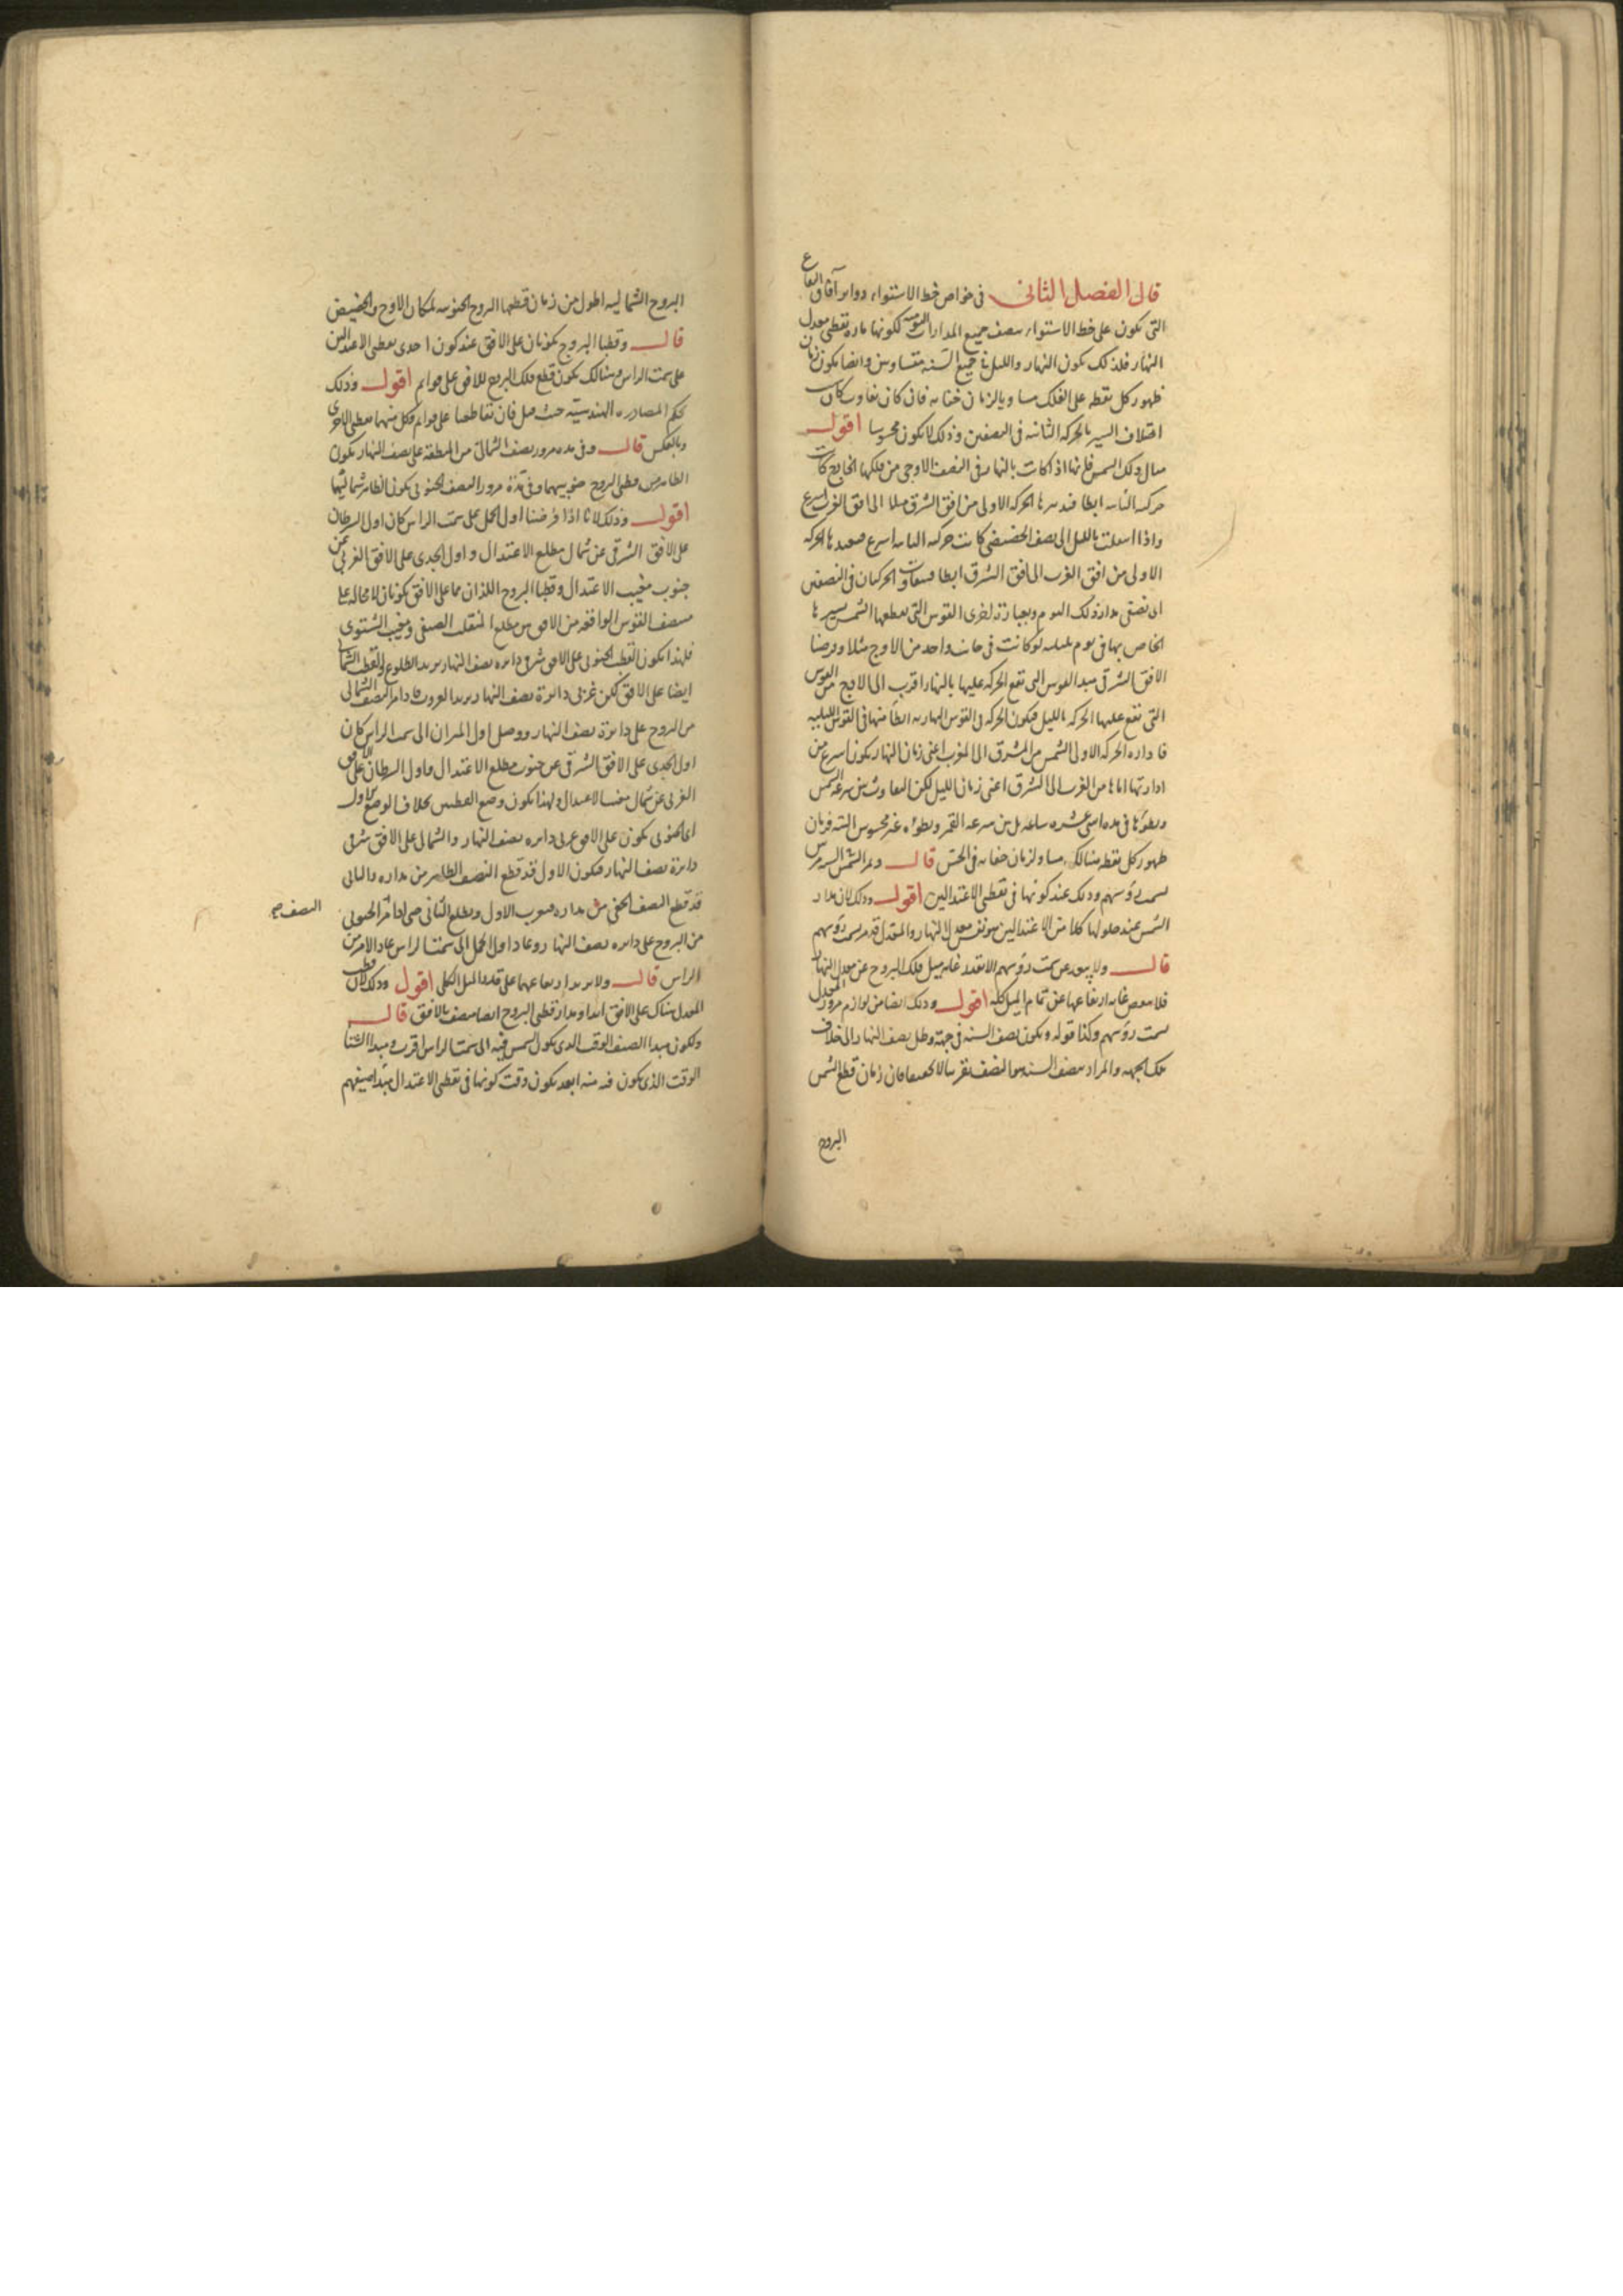 قال الفصل الثانى فى خواص خط الاستواء دوائر آفاق البقاع
التى تكون على خط الاستواء ينصف جميع المدارات اليومية لكونها مارة بقطبى معدل
النهار فلذلك يكون النهار والليل فى جميع السنة متساويين وايضا يكون زمان
ظهور كل نقطة على الفلك مساويا لزمان خفائه فان كان تفاوت كان
اختلاف السير بالحركة الثانية فى النصفين وذلك لا يكون محسوسا اقول
مثال ذلك الشمس فانها اذا كانت بالنهار فى النصف الاوجى من فلكها الخارج كانت
حركته الثانية ابطا الحركة الاولى من افق الشرق مثلا الى افق الغرب اسرع
واذا انتقلت بالليل الى نصف الحضيضى كانت حركته الثانية اسرع الحركة
الاولى من افق الغرب الى افق الشرق ابطا الحركتان فى النصفين
القوس التى يقطعها الشمس بسيرها
الخاص بها فى يوم بليلته لو كانت فى جانب واحد من الاوج مثلا وفرضنا
الافق الشرقى مبدا القوس التى تقع الحركة عليها بالنهار اقرب الى الاوج من القوس
التى تقع عليها الحركة بالليل فيكون الحركة فى القوس النهارية ابطا منها فى القوس الليلية
فادارة الحركة الاولى الشمس من المشرق الى المغرب اعنى زمان النهار يكون اسرع من
ادارتها اياها من الغرب الى الشرق اعنى زمان الليل لكن التفاوت بين سرعة الشمس
وبطؤها فى مدة اثنى عشره ساعة بل بين سرعة القمر وبطؤه غير محسوس البتة فزمان
ظهور كل نقطة هنالك مساو لزمان خفائه فى الحس قال وتمر الشمس السنة مرتين
بسمت رؤسهم وذلك عند كونها فى نقطتى الاعتدالين اقول وذلك لان مدار
الشمس عند حلولها كلا من الاعتدالين هو نفس معدل النهار والمعدل قد مر بسمت رؤسهم
قال ولا يبعد عن سمت رؤسهم الا بقدر غاية ميل فلك البروج عن معدل النهار
فلا ينقص غاية ارتفاعها عن تمام الميل كله اقول وذلك ايضا من لوازم مرور المعدل
سمت رؤسهم وكذا قوله ويكون نصف السنة فى جهة وظل نصف النهار الى خلاف
تلك الجهة والمراد بنصف السنة هو النصف تقريبا لا تحقيقا فان زمان قطع الشمس
البروج
البروج الشمالية اطول من زمان قطعها البروج الجنوبية لمكان الاوج والحضيض
قال وقطبا البروج يكونان على الافق عند كون احدى نقطتى الاعتدالين
على سمت الراس وهنالك يكون قطع فلك البروج للافق على قوائم اقول وذلك
بحكم المصادرة الهندسية حيث قيل فان تقاطعا على قوائم فكل منهما بقطبى الاخرى
وبالعكس قال وفى مدة مرور نصف الشمالى من المنطقة على نصف النهار يكون
الظاهر من قطبى البروج جنوبيهما وفى مدة مرور النصف الجنوبى يكون الظاهر شماليهما
اقول وذلك لانا اذا فرضنا اول الحمل على سمت الراس كان اول السرطان
على الافق الشرقى عن شمال مطلع الاعتدال واول الجدى على الافق الغربى عن
جنوب مغيب الاعتدال وقطبا البروج اللذان هما على الافق يكونان لا محالة على
منتصف القوس الواقعة من الافق بين مطلع المنقلب الصيفى ومغيب الشتوى
فلهذا يكون القطب الجنوبى على الافق شرقى دائرة نصف النهار يريد الطلوع والقطب الشمالى
ايضا على الافق لكن غربى دائرة نصف النهار يريد الغروب فاذا مر النصف الشمالى
من البروج على دائرة نصف النهار ووصل اول الميزان الى سمت الراس كان
اول الجدى على الافق الشرقى عن جنوب مطلع الاعتدال واول السرطان على الافق
الغربى عن شمال مغيب الاعتدال ولهذا يكون وضع القطبين بخلاف الوضع الاول
اى الجنوبى يكون على الافق غربى دائرة نصف النهار والشمالى على الافق شرقى
دائرة نصف النهار فيكون الاول قد قطع النصف الظاهر من مداره والثانى
قد قطع النصف الخفى من مداره فيغرب الاول ويطلع الثانى حتى اذا مر الجنوبى
النصف صح
من البروج على دائرة نصف النهار وعاد اول الحمل الى سمت الراس عاد الامر من
الراس قال ولا يزيد ارتفاعهما على قدر الميل الكلى اقول وذلك لان قطب
المعدل هناك على الافق ابدا ومدار قطبى البروج ايضا ينصف بالافق قال
ولكون مبدا الصيف الوقت الذى يكون الشمس فيه الى سمت الراس اقرب ومبدا الشتا
الوقت الذى يكون فيه منه ابعد يكون وقت كونها فى نقطتى الاعتدال مبدا صيفهم